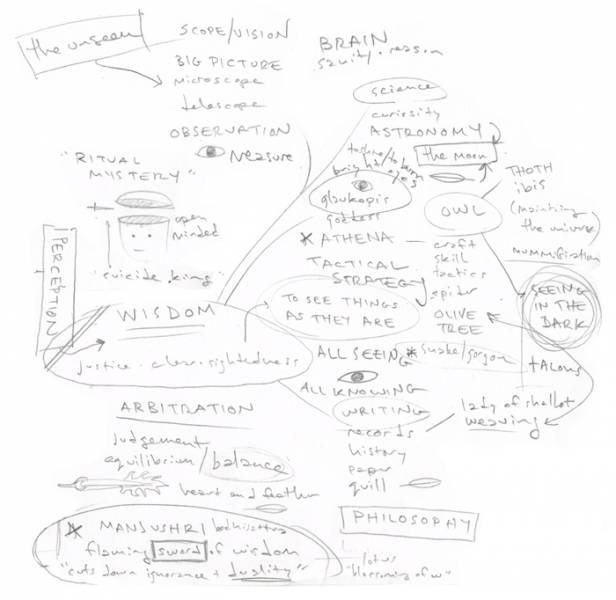 the unseen
SCOPE/VISION
BIG PICTURE
microscope
telescope
OBSERVATION
measure
BRAIN
sanity · reason
science
curiosity
ASTRONOMY
the moon
to shine/to burn
bright eyes
glaukopis
goddess
* ATHENA — craft
skill
tactics
spider
OLIVE
TREE
* snake/gorgon
TACTICAL
STRATEGY
OWL
THOTH
ibis
(maintaining
the universe)
mummification
SEEING
IN THE
DARK
talons
lady of shallot
weaving
"RITUAL
MYSTERY"
open
minded
"suicide king"
PERCEPTION
WISDOM
justice · clear · sightedness
TO SEE THINGS
AS THEY ARE
ALL SEEING
ALL KNOWING
WRITING
records
history
paper
quill
PHILOSOPHY
lotus
"blossoming of w"
ARBITRATION
judgement
equilibrium/balance
heart and feather
* MANJUSHRI/bodhisattva
flaming sword of wisdom
"cuts down ignorance + duality"